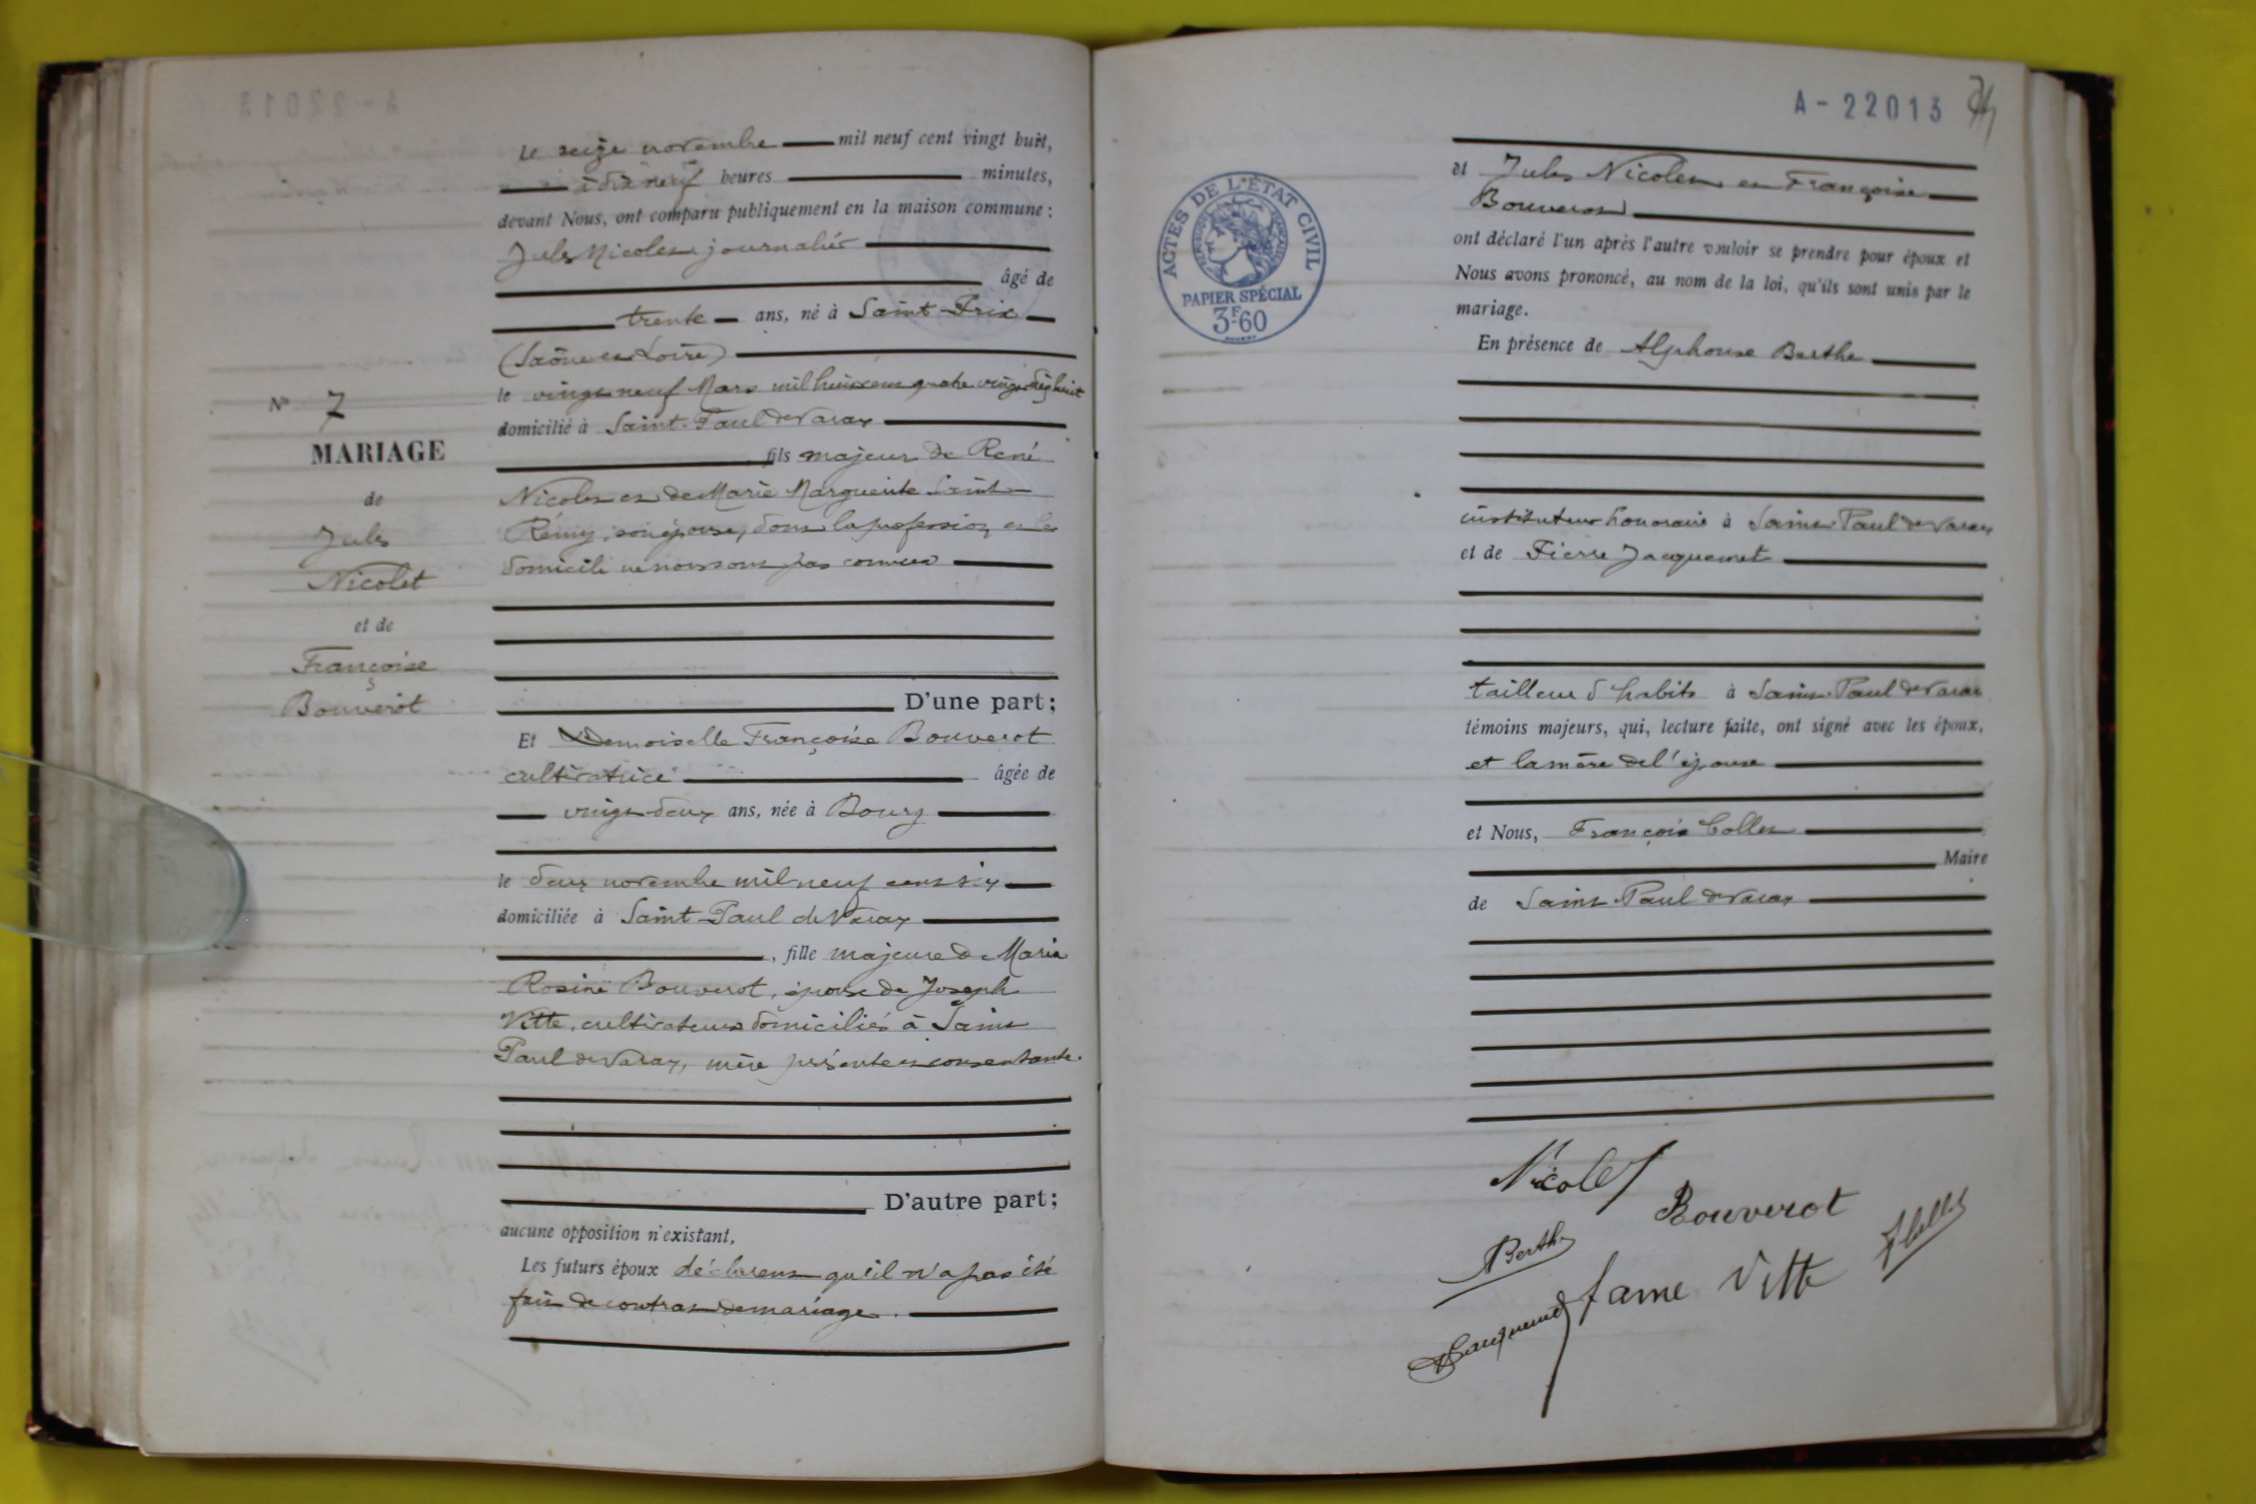 Nº 7
MARIAGE
de
Jules
Nicolet
et de
Françoise
Bouverot
Le seize novembre mil neuf cent vingt huit,
à dix neuf heures minutes,
devant Nous, ont comparu publiquement en la maison commune :
Jules Nicolet journalier
âgé de
trente ans, né à Saint-Prix
(Saône et Loire)
le vingt neuf Mars mil huit cent quatre vingt dix huit
domicilié à Saint-Paul de Varax
fils majeur de René
Nicolet et de Marie Marguerite Saint
Rémy, son épouse, dont la profession et le
domicile ne nous sont pas connus
D'une part;
Et Demoiselle Françoise Bouverot
cultivatrice âgée de
vingt-deux ans, née à Bourg
le deux novembre mil neuf cent six
domiciliée à Saint-Paul de Varax
, fille majeure de Maria
Rosine Bouverot, épouse de Joseph
Vitte, cultivateurs domiciliés à Saint
Paul de Varax, mère présente et consentante.
D'autre part;
aucune opposition n'existant,
Les futurs époux déclarent qu'il n'a pas été
fait de contrat de mariage.
A - 22013
ACTES DE L'ÉTAT CIVIL
PAPIER SPÉCIAL
3F.60
et Jules Nicolet et Françoise
Bouverot
ont déclaré l'un après l'autre vouloir se prendre pour époux et
Nous avons prononcé, au nom de la loi, qu'ils sont unis par le
mariage.
En présence de Alphonse Berthe
instituteur honoraire à Saint Paul de Varax
et de Pierre Jacquemet
tailleur d'habits à Saint-Paul de Varax
témoins majeurs, qui, lecture faite, ont signé avec les époux,
et la mère de l'épouse
et Nous, François Collet
Maire
de Saint Paul de Varax
Nicolet
Bouverot
Berthe
fame Vitte
Jacquemet